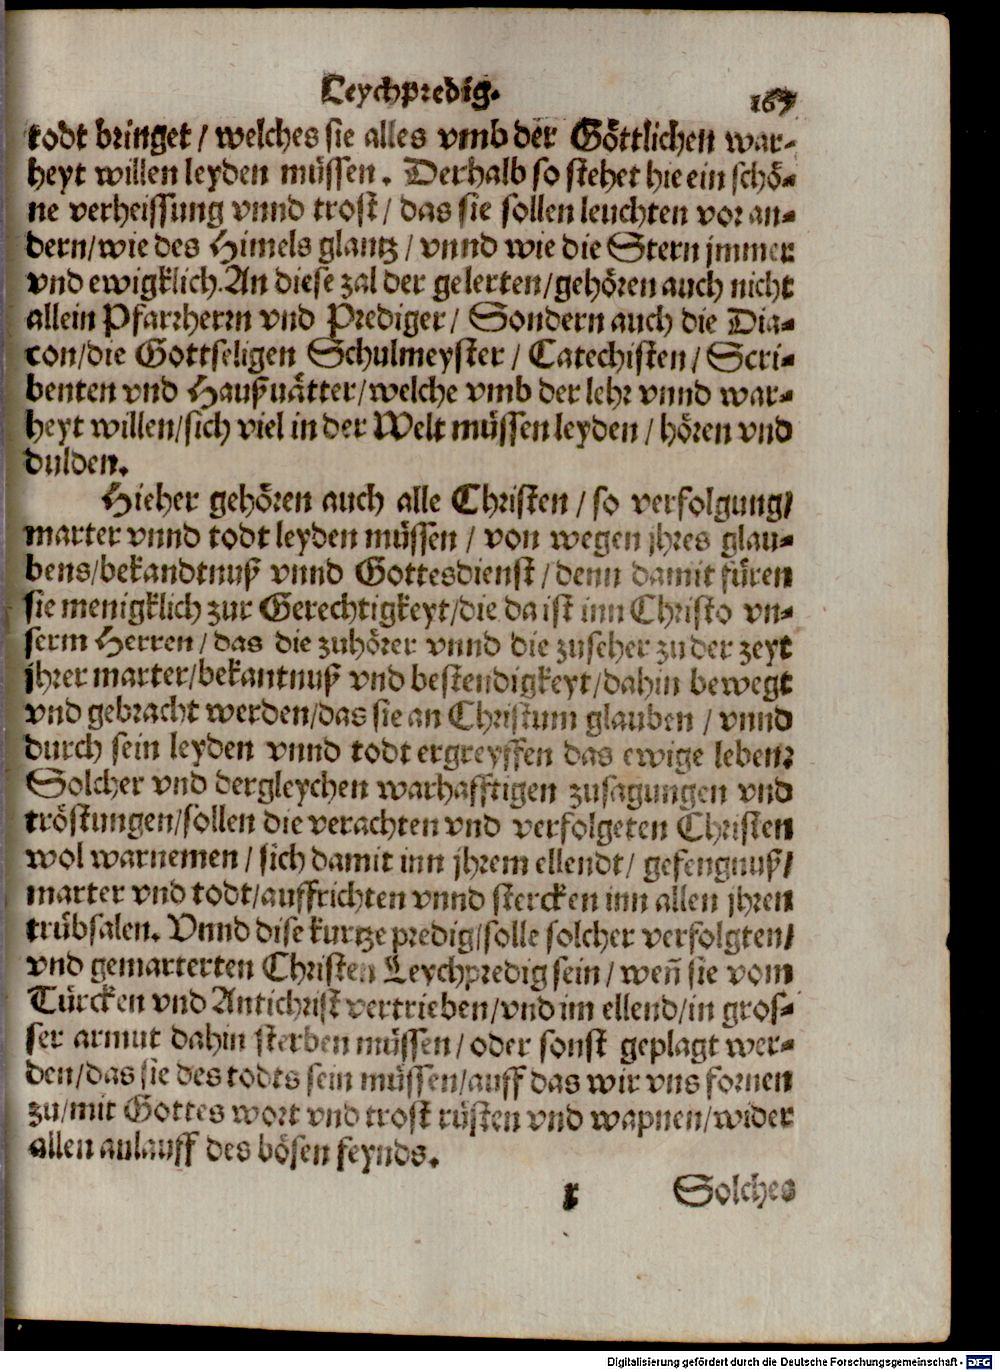 Leychpredig.
167
todt bringet / welches sie alles vmb der Göttlichen war-
heyt willen leyden müssen. Derhalb so stehet hie ein schö-
ne verheissung vnnd trost / das sie sollen leuchten vor an-
dern/wie des Himels glantz / vnnd wie die Stern jmmer
vnd ewigklich. An diese zal der gelerten/gehören auch nicht
allein Pfarrherrn vnd Prediger / Sondern auch die Dia-
con/die Gottseligen Schulmeyster / Catechisten / Scri-
benten vnd Haußuätter/welche vmb der lehr vnnd war-
heyt willen/sich viel in der Welt müssen leyden / hören vnd
dulden.
Hieher gehören auch alle Christen / so verfolgung/
marter vnnd todt leyden müssen / von wegen jhres glau-
bens/bekandtnuß vnnd Gottesdienst / denn damit füren
sie menigklich zur Gerechtigkeyt/die da ist inn Christo vn-
serm Herren / das die zuhörer vnnd die zuseher zu der zeyt
jhrer marter/bekantnuß vnd bestendigkeyt/dahin bewegt
vnd gebracht werden/das sie an Christum glauben / vnnd
durch sein leyden vnnd todt ergreyffen das ewige leben:
Solcher vnd dergleychen warhafftigen zusagungen vnd
tröstungen/sollen die verachten vnd verfolgeten Christen
wol warnemen / sich damit inn jhrem ellendt / gefengnuß/
marter vnd todt/auffrichten vnnd stercken inn allen jhren
trübsalen. Vnnd dise kurtze predig/solle solcher verfolgten/
vnd gemarterten Christen Leychpredig sein / weñ sie vom
Türcken vnd Antichrist vertrieben/vnd im ellend/in gros-
ser armut dahin sterben müssen / oder sonst geplagt wer-
den/das sie des todts sein müssen/auff das wir vns fornen
zu/mit Gottes wort vnd trost rüsten vnd wapnen/wider
allen anlauff des bösen feynds.
x Solches
Digitalisierung gefördert durch die Deutsche Forschungsgemeinschaft - DFG